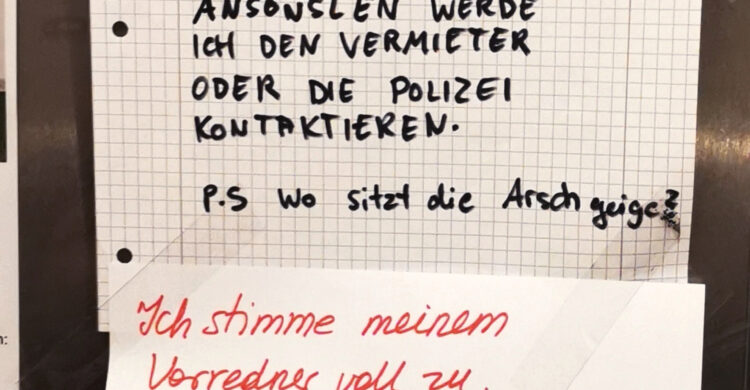 ANSONSTEN WERDE
ICH DEN VERMIETER
ODER DIE POLIZEI
KONTAKTIEREN.
P.S Wo sitzt die Arschgeige?
Ich stimme meinem
Vorredner voll zu.